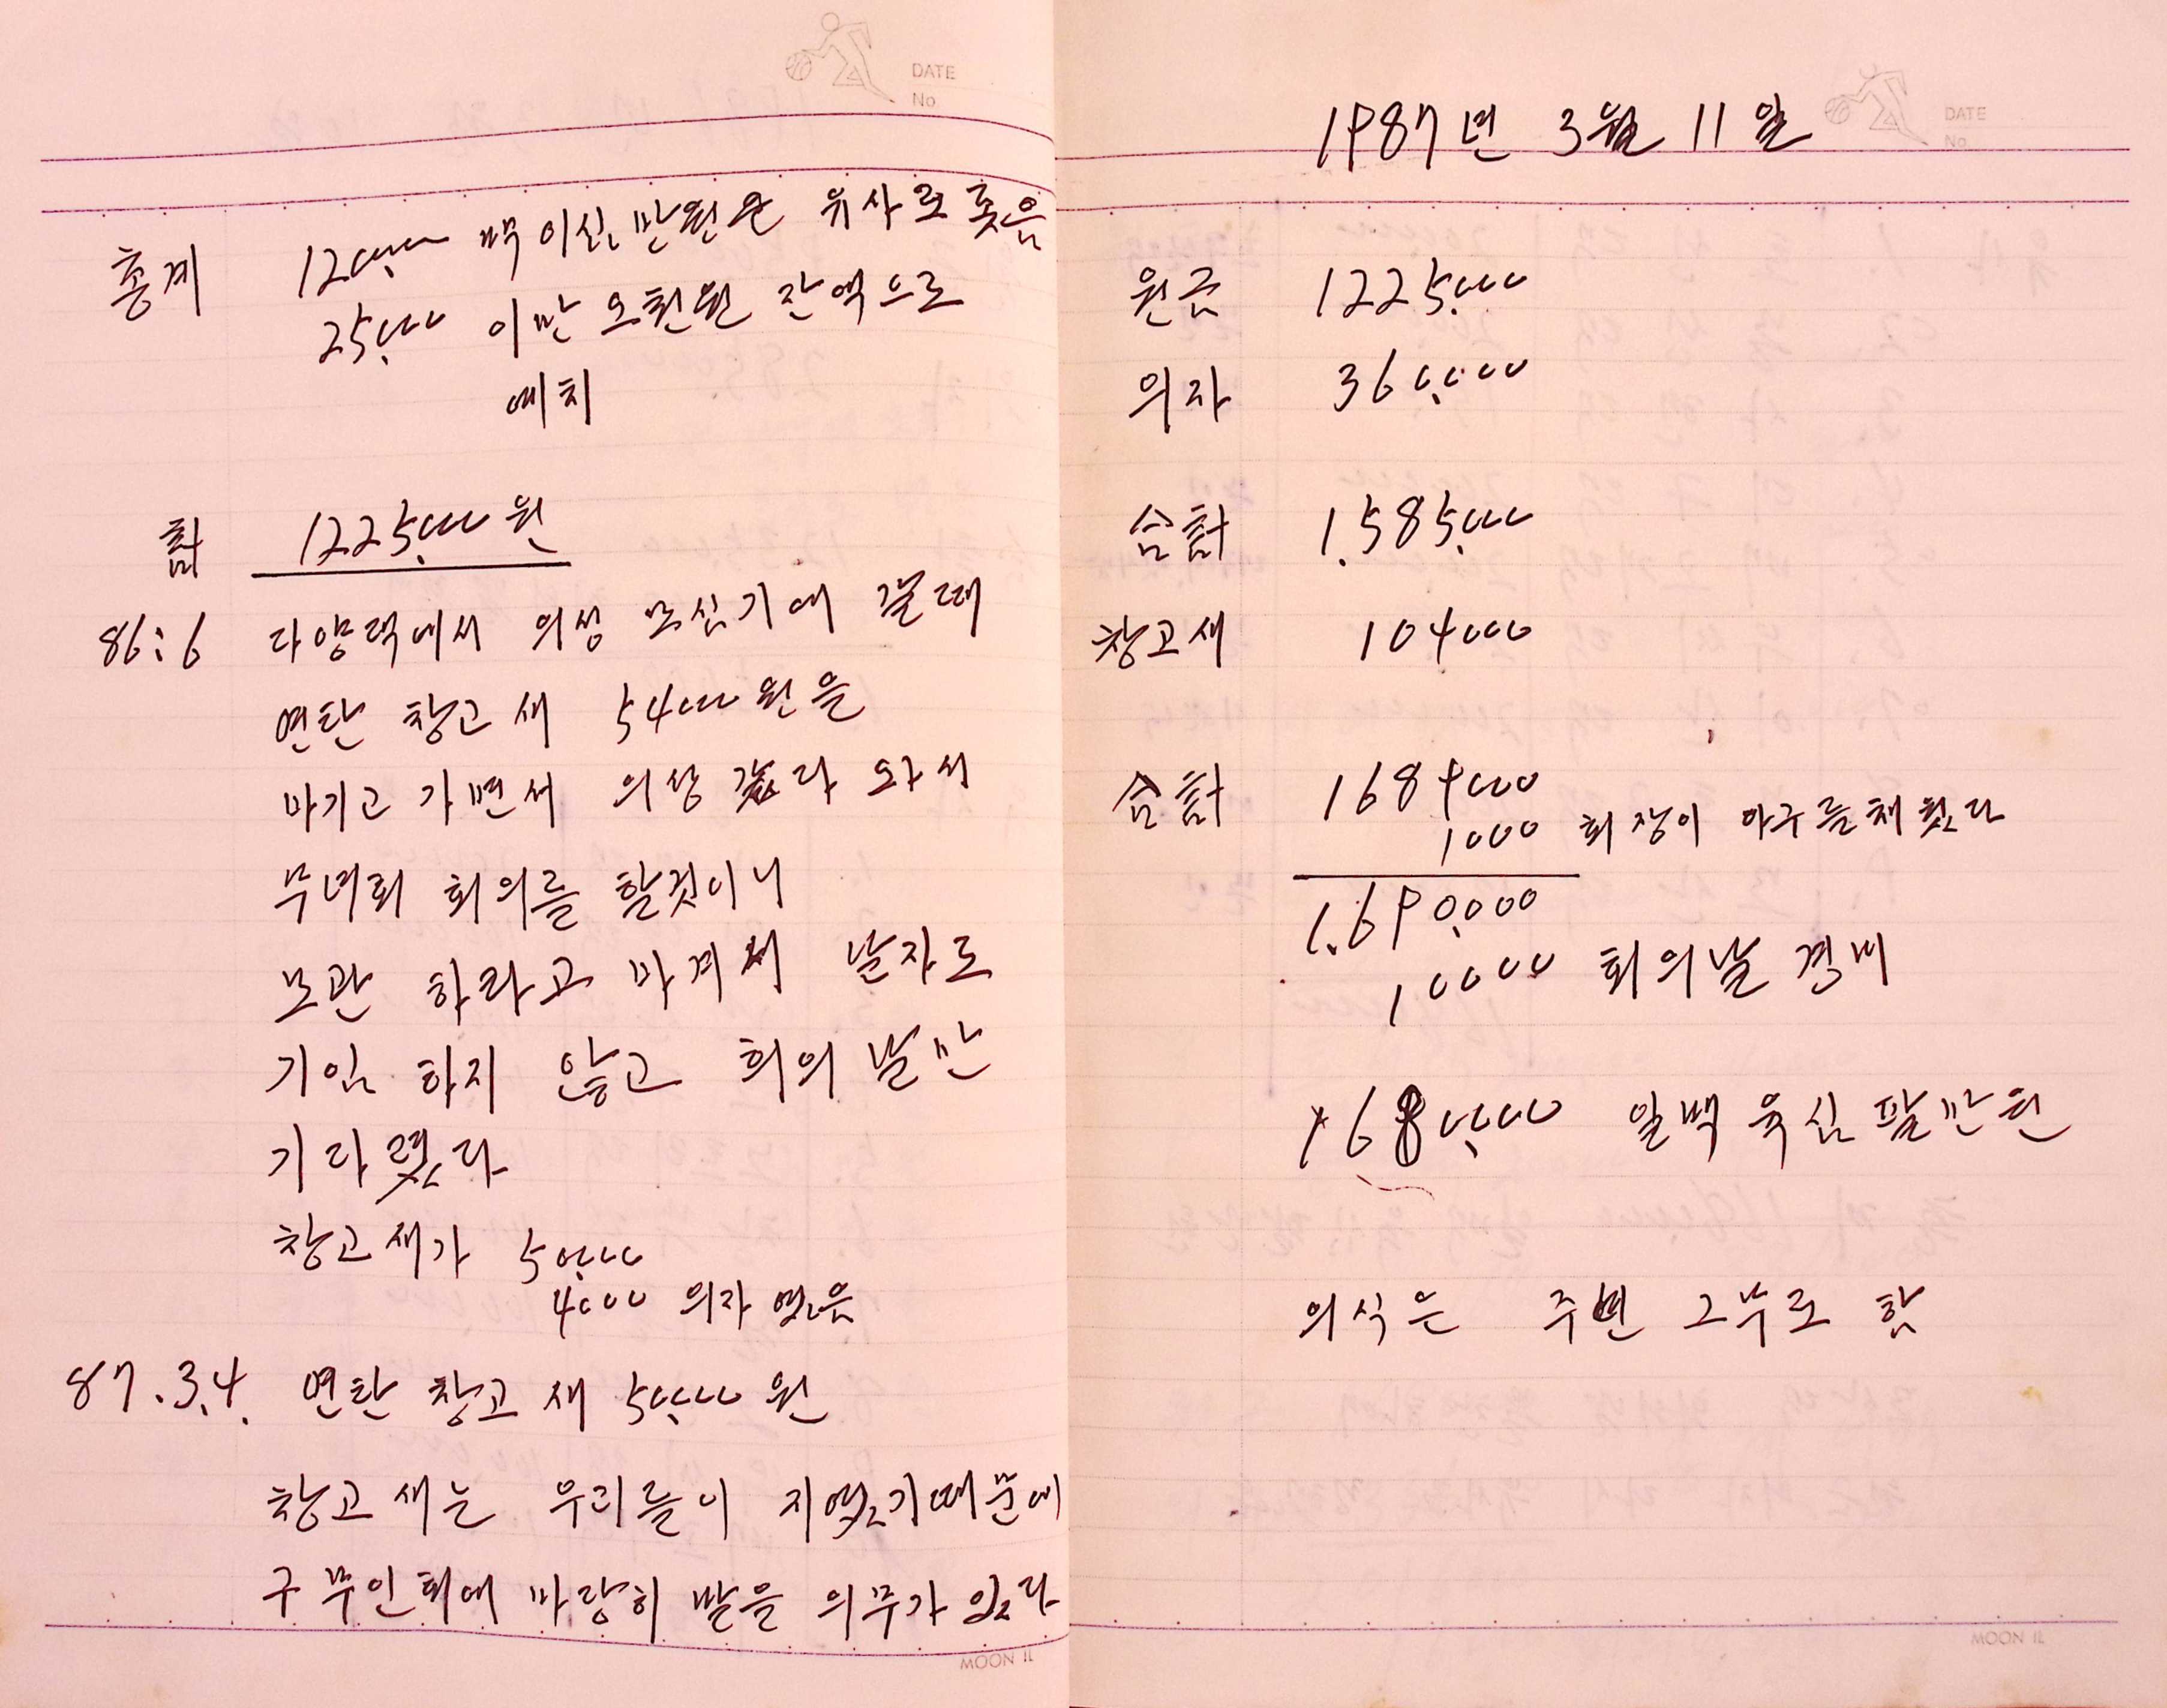 DATE
No
총계 1200,000 백이십만원은 유사로 좆음
25,000 이만 오천원 잔액으로
예치
합計 1225,000원
86:6 다양택에서 의성 모심기에 갈때
연탄 창고새 54000원을
마기고 가면서 의성 갔다 와서
부녀회 회의를 할것이니
보관 하라고 마겨서 날자도
기입 하지 않고 희의 날만
기다렸다
창고새가 50,000
4000 의자 였음
87.3.4. 연탄 창고 새 50,000원
창고 새는 우리들이 지였기때문에
구 부인회에 마랑히 받을 의무가 있다
MOON IL
DATE
No.
1987년 3월 11일
원금 1225,000
의자 360,000
合計 1.585,000
창고새 104000
合計 1689000
1000 회장이 야구를채웠다
1.690,000
10000 회의날 경비
1680,000 일백 육십 팔만원
의식은 주변 그부로 함
MOON IL